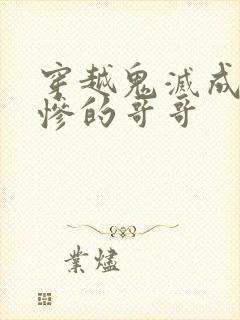 穿越鬼滅成
慘的哥哥
業燼